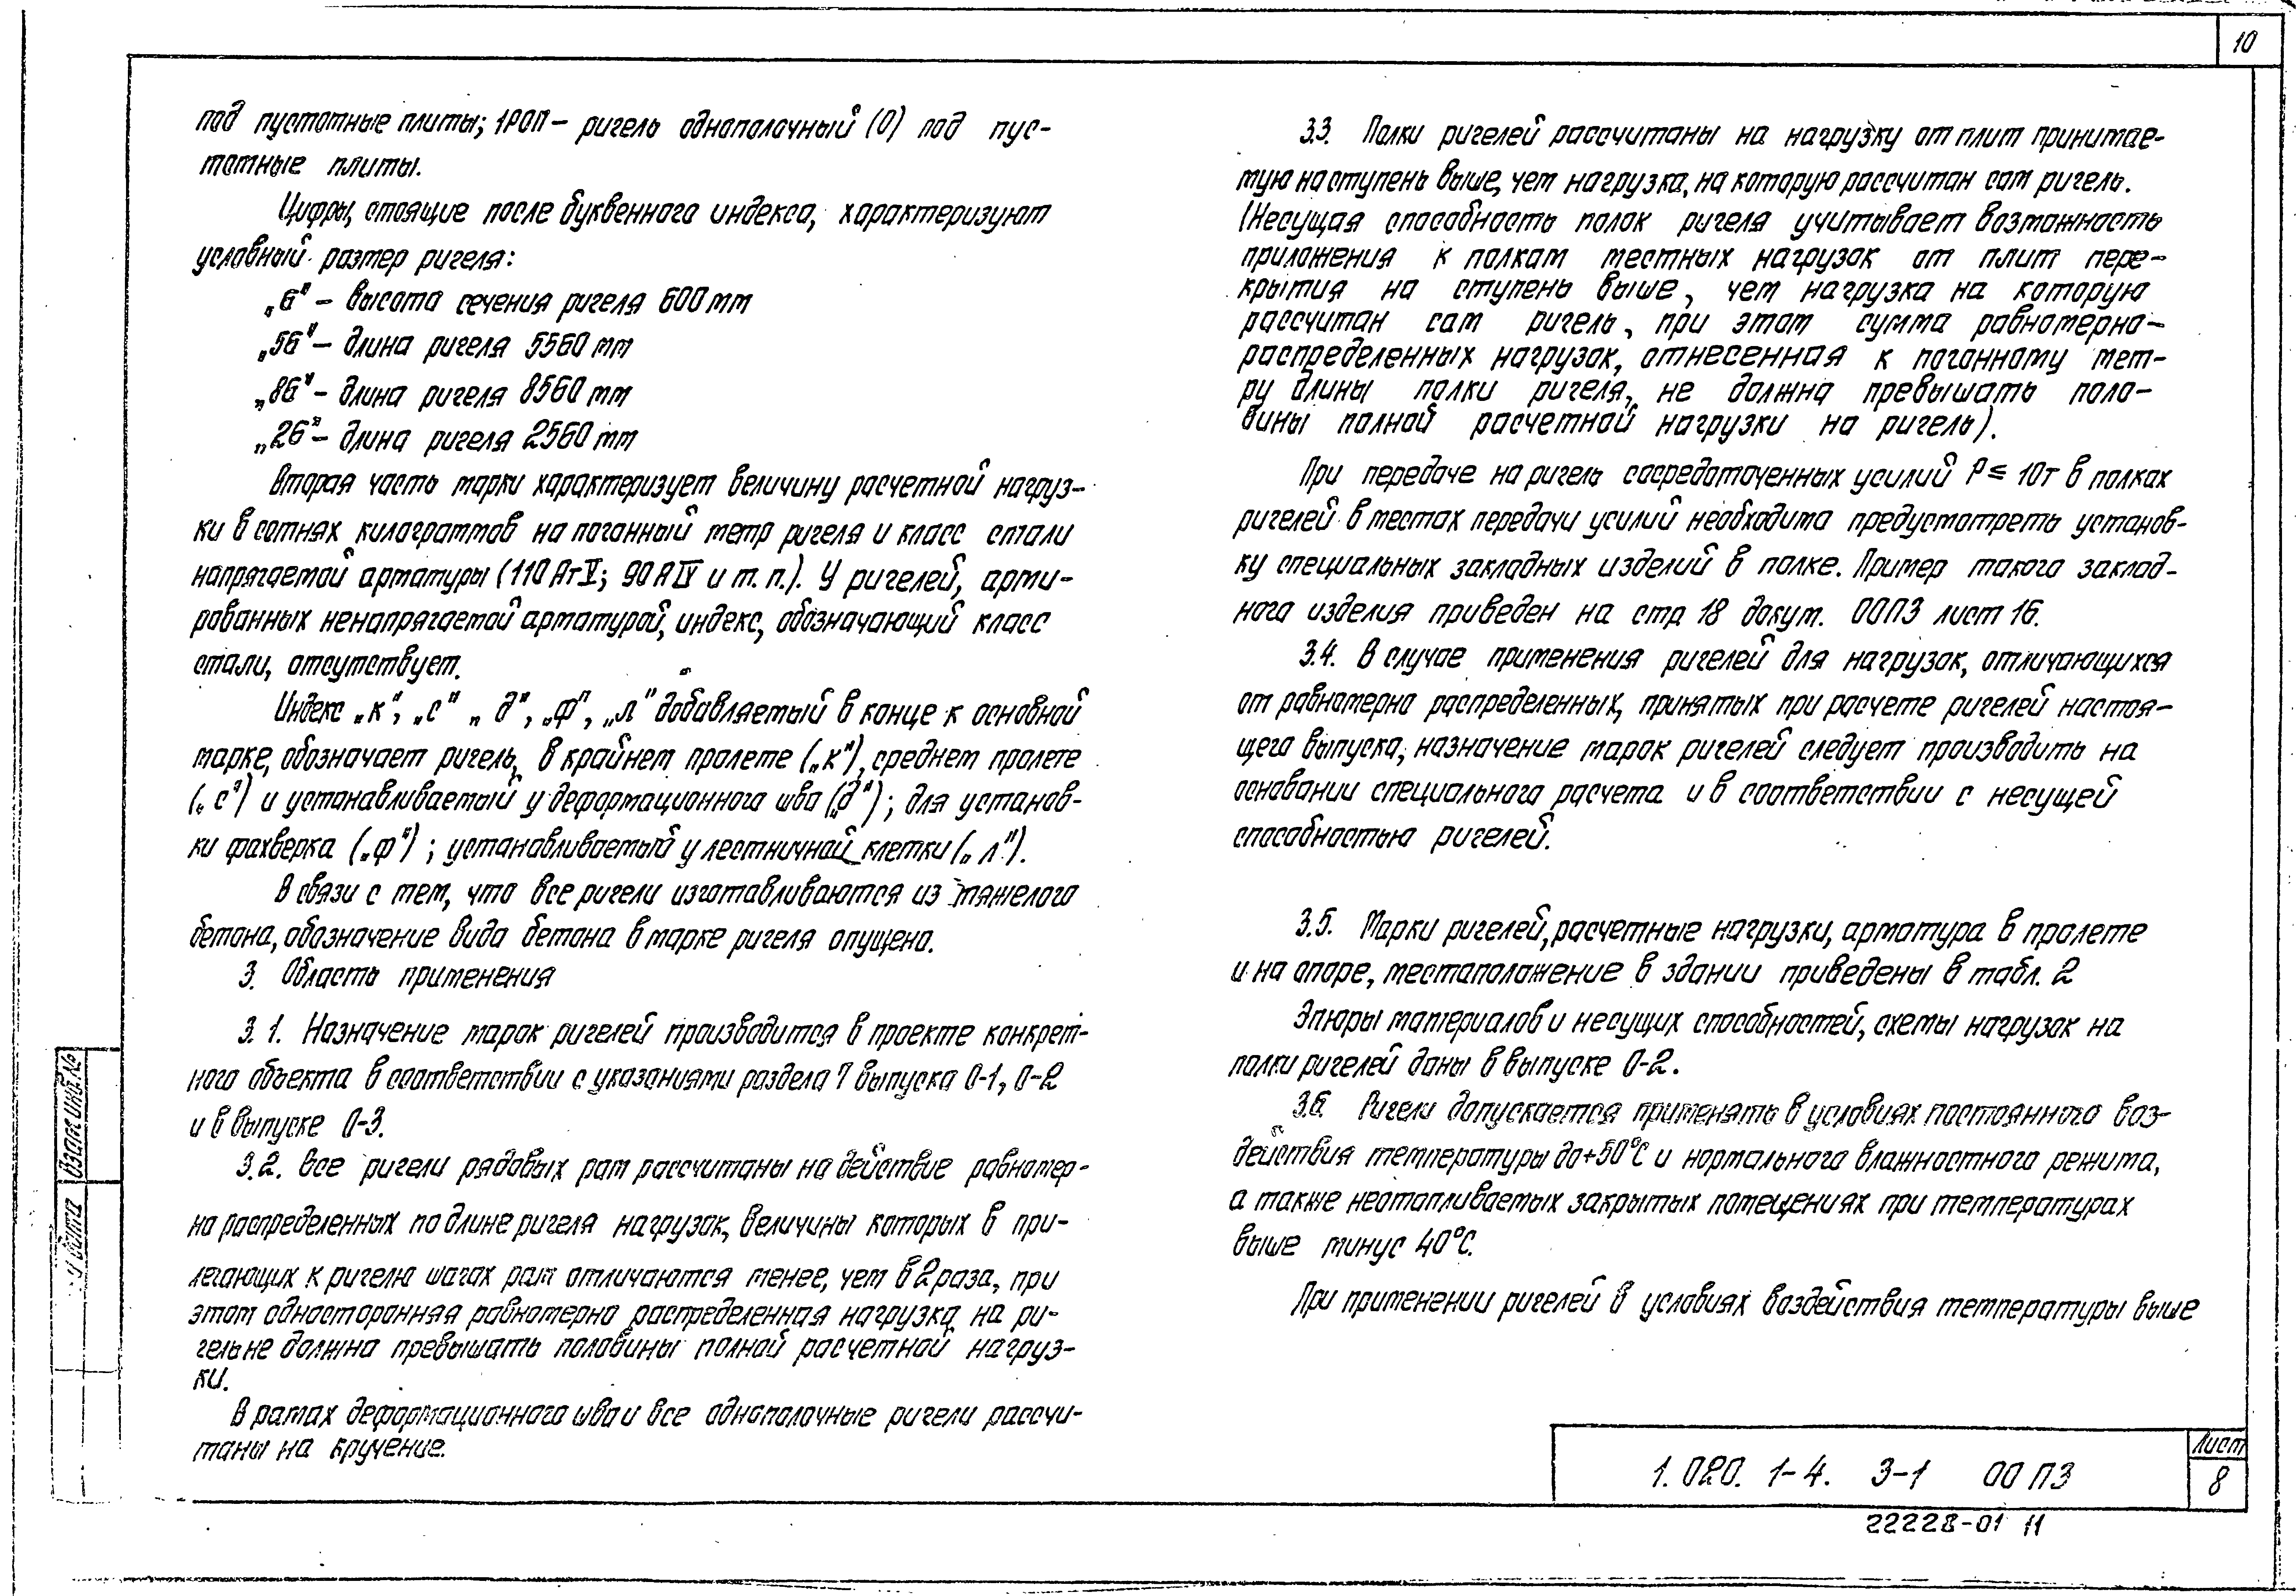 10
под пустотные плиты; 1РОП – ригель однополочный (О) под пус-
тотные плиты.
Цифры, стоящие после буквенного индекса, характеризуют
условный размер ригеля:
„6" – высота сечения ригеля 600 мм
„56" – длина ригеля 5560 мм
„86" – длина ригеля 8560 мм
„26" – длина ригеля 2560 мм
Вторая часть марки характеризует величину расчетной нагруз-
ки в сотнях килограммов на погонный метр ригеля и класс стали
напрягаемой арматуры (110 АтV; 90 АIV и т.п.). У ригелей, арми-
рованных ненапрягаемой арматурой, индекс, обозначающий класс
стали, отсутствует.
Индекс „к", „с" „ д", „ф", „л" добавляемый в конце к основной
марке, обозначает ригель, в крайнем пролете („к"), среднем пролете
(„ с") и устанавливаемый у деформационного шва („д"); для установ-
ки фахверка („ф") ; устанавливаемый у лестничной клетки („ л").
В связи с тем, что все ригели изготавливаются из тяжелого
бетона, обозначение вида бетона в марке ригеля опущено.
3. Область применения
3.1. Назначение марок ригелей производится в проекте конкрет-
ного объекта в соответствии с указаниями раздела 7 выпуска 0-1, 0-2
и в выпуске 0-3.
3.2. Все ригели рядовых рам рассчитаны на действие равномер-
но распределенных по длине ригеля нагрузок, величины которых в при-
легающих к ригелю шагах рам отличаются менее, чем в 2 раза, при
этом односторонняя равномерно распределенная нагрузка на ри-
гель не должна превышать половины полной расчетной нагруз-
ки.
В рамах деформационного шва и все однополочные ригели рассчи-
таны на кручение.
3.3. Полки ригелей рассчитаны на нагрузку от плит принимае-
мую на ступень выше, чем нагрузка, на которую рассчитан сам ригель.
(Несущая способность полок ригеля учитывает возможность
приложения к полкам местных нагрузок от плит пере-
крытия на ступень выше, чем нагрузка на которую
рассчитан сам ригель, при этом сумма равномерно-
распределенных нагрузок, отнесенная к погонному мет-
ру длины полки ригеля, не должна превышать поло-
вины полной расчетной нагрузки на ригель).
При передаче на ригель сосредоточенных усилий Р ≤ 10т в полках
ригелей в местах передачи усилий необходимо предусмотреть установ-
ку специальных закладных изделий в полке. Пример такого заклад-
ного изделия приведен на стр 18 докум. 00ПЗ лист 16.
3.4. В случае применения ригелей для нагрузок, отличающихся
от равномерно распределенных, принятых при расчете ригелей настоя-
щего выпуска, назначение марок ригелей следует производить на
основании специального расчета и в соответствии с несущей
способностью ригелей.
3.5. Марки ригелей, расчетные нагрузки, арматура в пролете
и на опоре, местаположение в здании приведены в табл. 2
Эпюры материалов и несущих способностей, схемы нагрузок на
полки ригелей даны в выпуске 0-2.
3.6. Ригели допускается применять в условиях постоянного воз-
действия температуры до +50°С и нормального влажностного режима,
а также неотапливаемых закрытых помещениях при температурах
выше минус 40°С.
При применении ригелей в условиях воздействия температуры выше
Взам инв.№
и дата
1. 020. 1-4. 3-1 00 ПЗ
Лист
8
22228-01 11